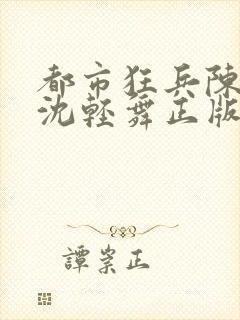 都市狂兵陳
沈輕舞正版
譚崇正